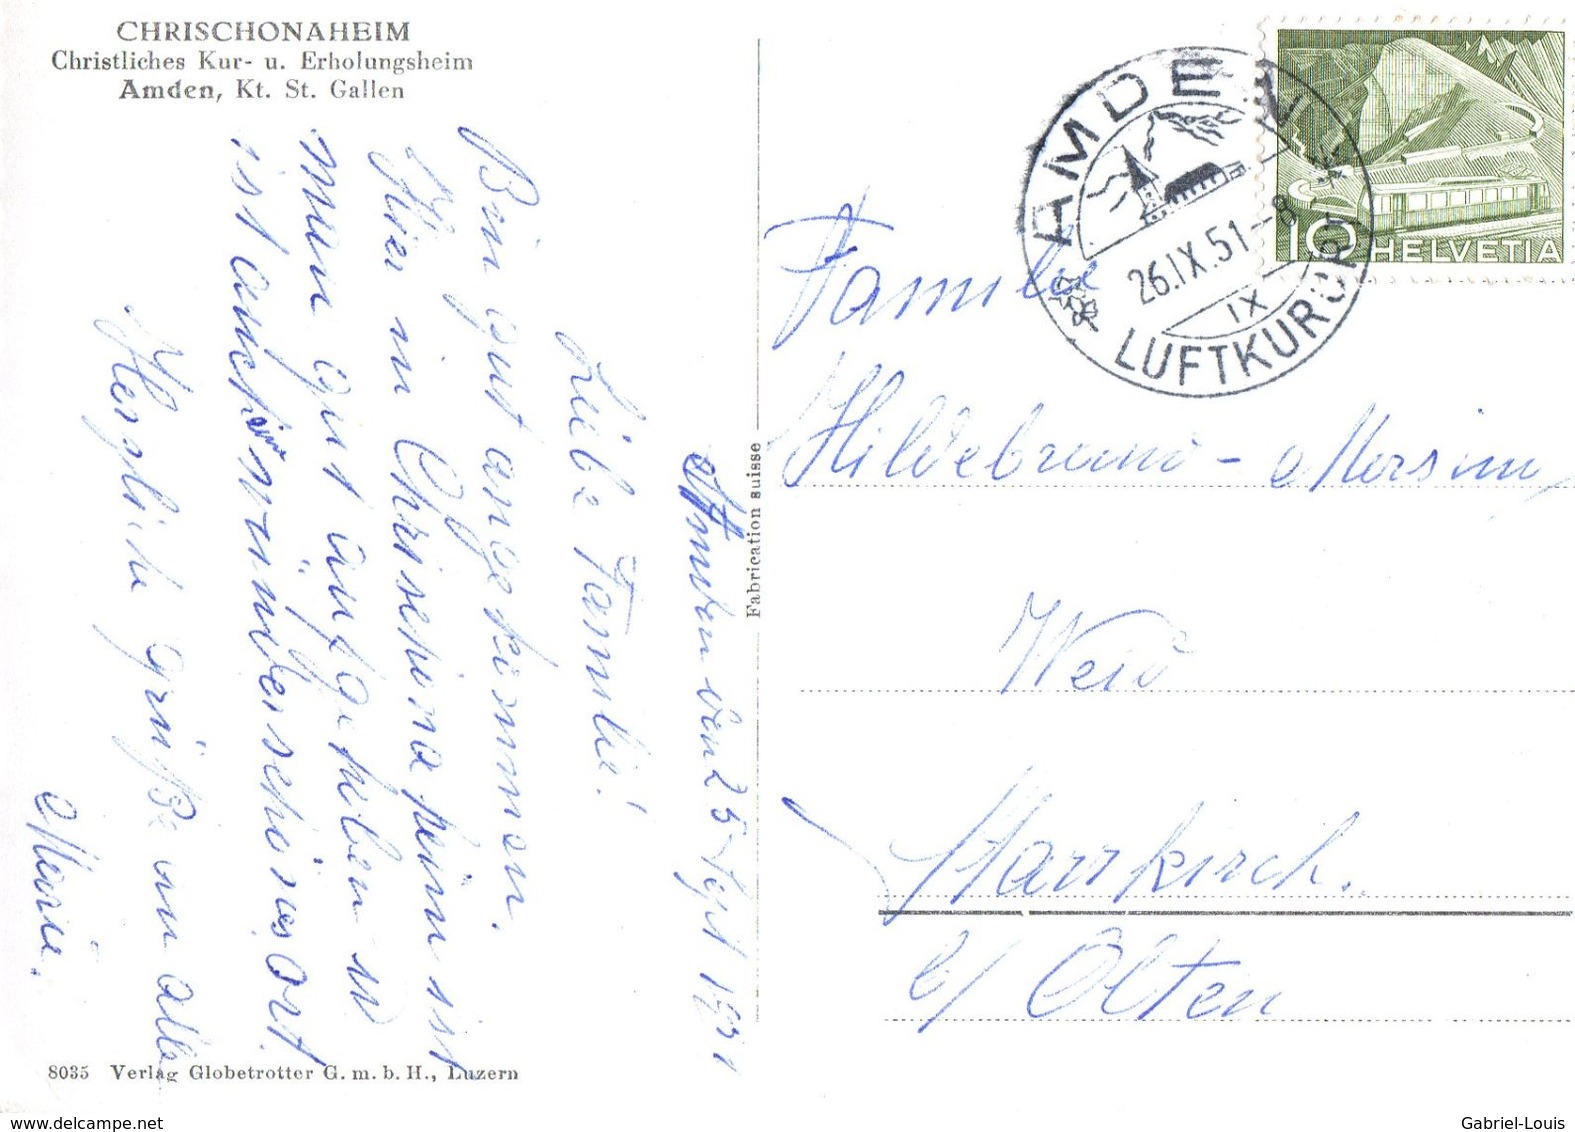 CHRISCHONAHEIM
Christliches Kur- u. Erholungsheim
Amden, Kt. St. Gallen
Amden den 25. Sept 1951
Liebe Familie!
Bin gut angekommen.
Hier im Chrischonaheim ist
man gut aufgehoben u
ist auch ein wunderschönes Ort.
Herzliche Grüße an alle
Marie.
8035 Verlag Globetrotter G. m. b. H., Luzern
Fabrication suisse
AMDEN
26.IX.51-8
IX
LUFTKURORT
10 HELVETIA
Familie
Hildebrand
Weid
Starrkirch.
b/ Olten
Gabriel-Louis